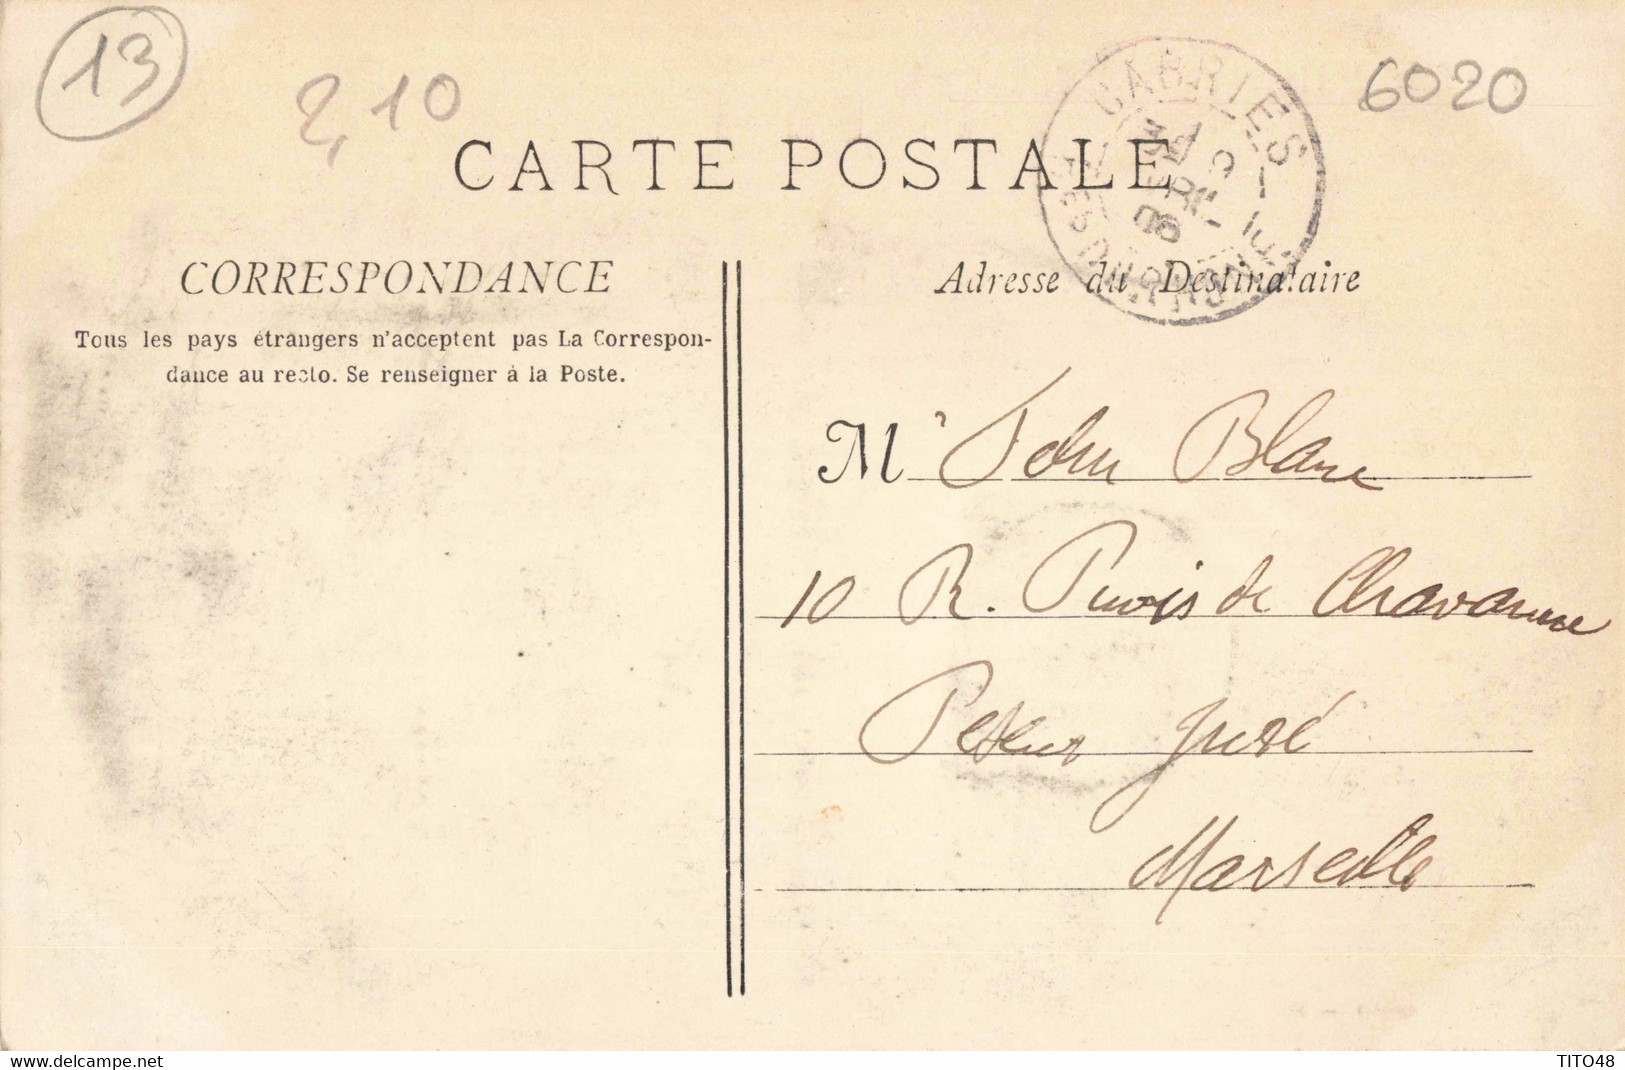 13
2,10
6020
CABRIES
BCHES DU RHONE
08
CARTE POSTALE
CORRESPONDANCE
Tous les pays étrangers n'acceptent pas La Correspon-
dance au recto. Se renseigner à la Poste.
Adresse du Destinataire
M John Blanc
10 R. Puvis de Chavanne
Peseur Juré
Marseille
delcampe.net
TITO48